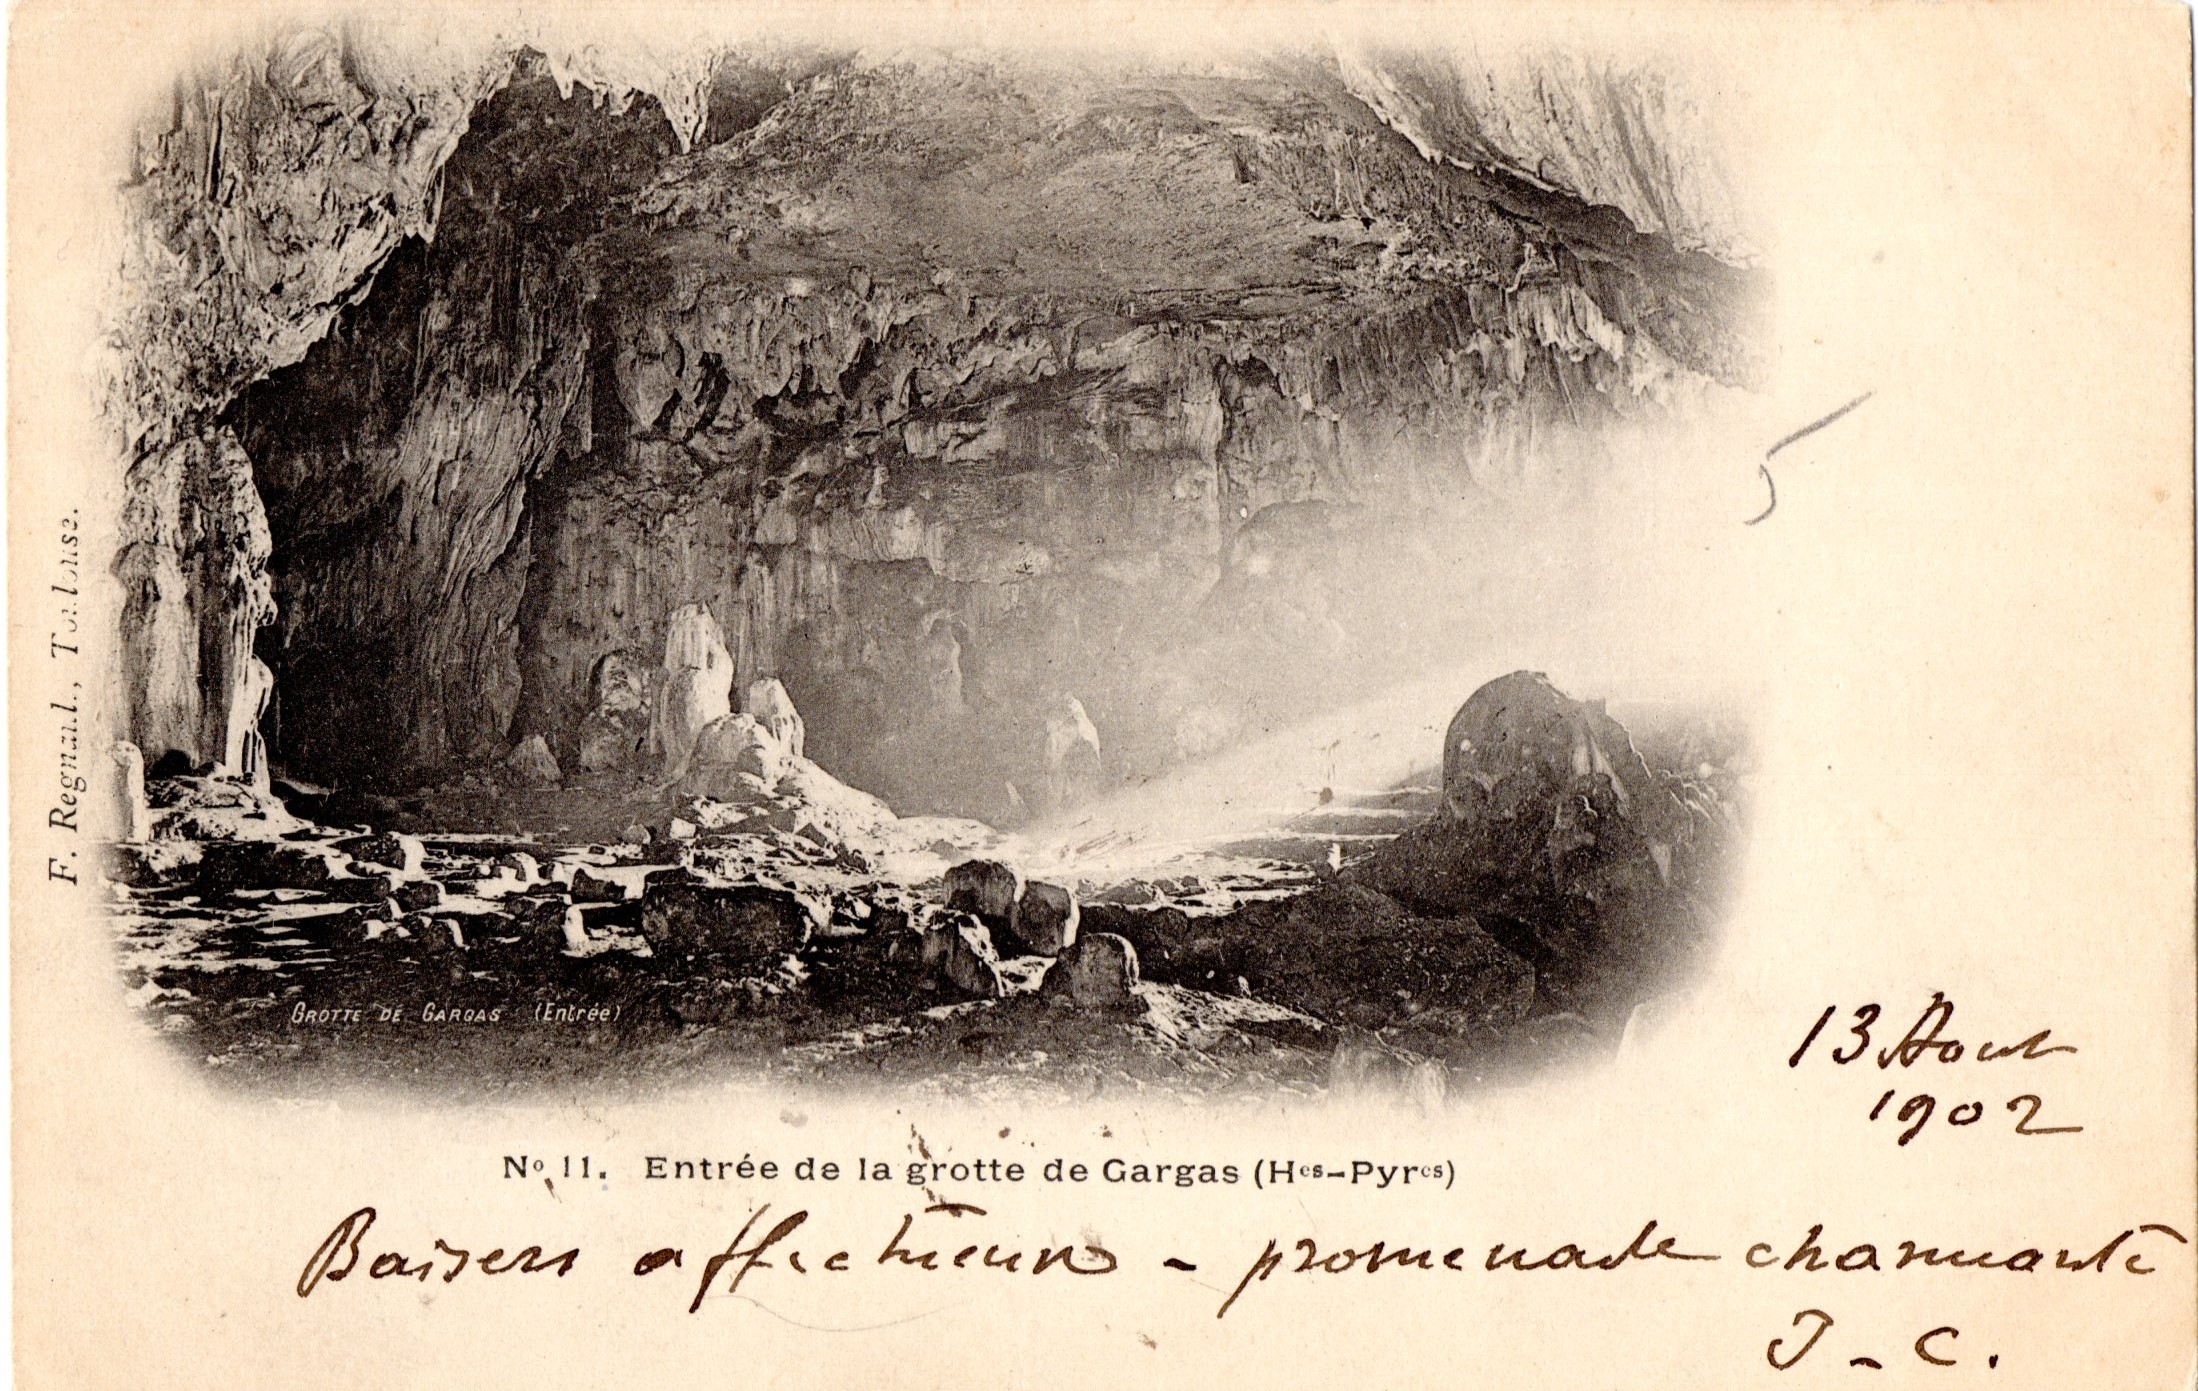 F. Regnault, Toulouse.
5
GROTTE DE GARGAS (Entrée)
13 Aout
1902
No 11. Entrée de la grotte de Gargas (Hes-Pyres)
Baisers affectueux - promenade charmante
J - C.